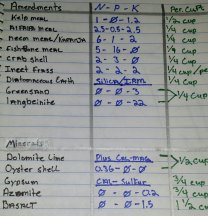 Amendments N - P - K Per Cu.Ft
Kelp meal 1 - Ø - 1.2 1/2 cup
Alfalfa meal 2.5-0.5-2.5 1/4 cup
Neem meal/Karanja 6 - 1 - 2 1/4 cup
Fishbone meal 5 - 16 - Ø 1/4 cup
Crab shell 2 - 3 - Ø 1/4 cup
Insect Frass 2 - 2 - 2 1/4 cup
Diatomaceous Earth Silica/Iron 1/4 cup
Greensand Ø - Ø - 3 1/4 cup
Langbeinite Ø - Ø - 22
Minerals
Dolomite Lime Plus Cal-Mag 1/2 cup
Oyster shell 0.36 - Ø - Ø
Gypsum Cal - Sulfur 3/4 cup
Azomite Ø - Ø - 0.2 3/4 cup
Basalt Ø - Ø - 1.5 1 1/2 cup